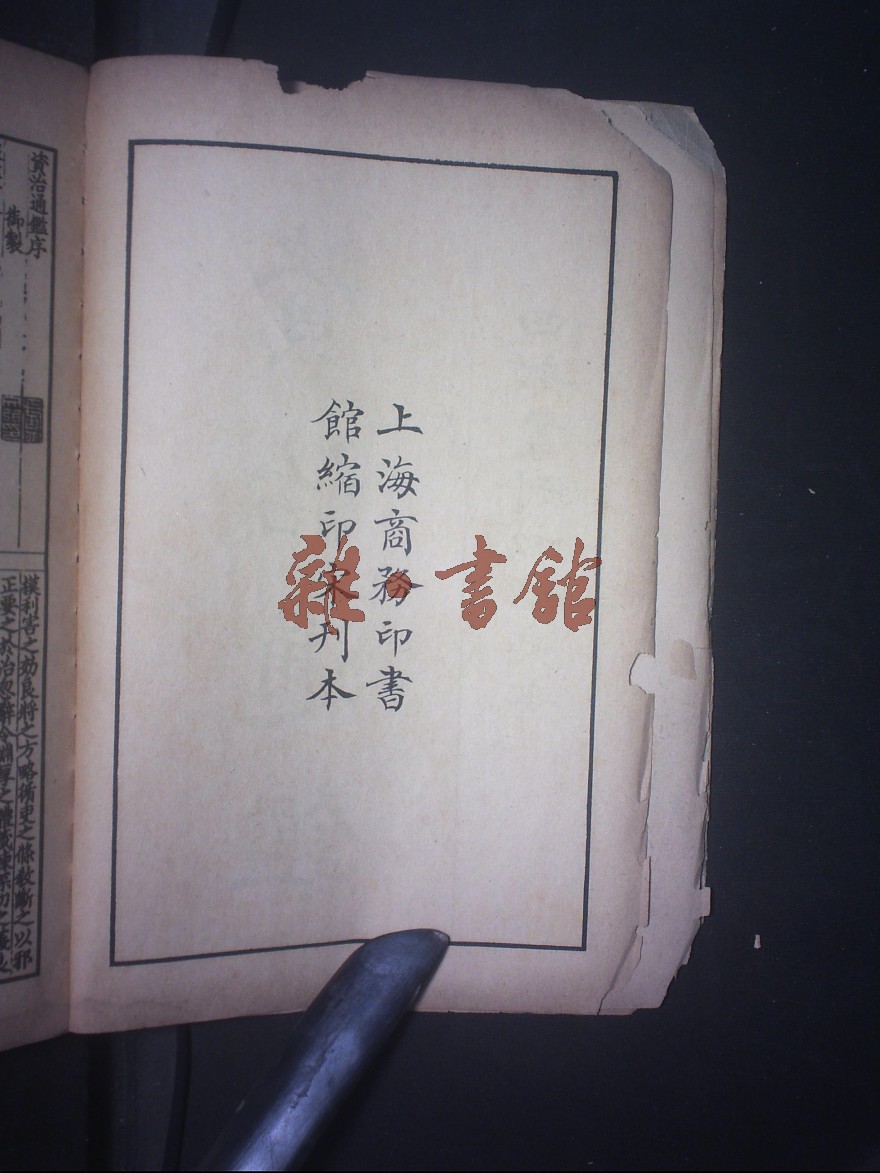 上海商務印書
館縮印宋刊本
雜書館
資治通鑑序
御製
模利害之効良將之方略循吏之條教斷之以邪
正要之於治忽辭令淵厚之體箴諫深切之義